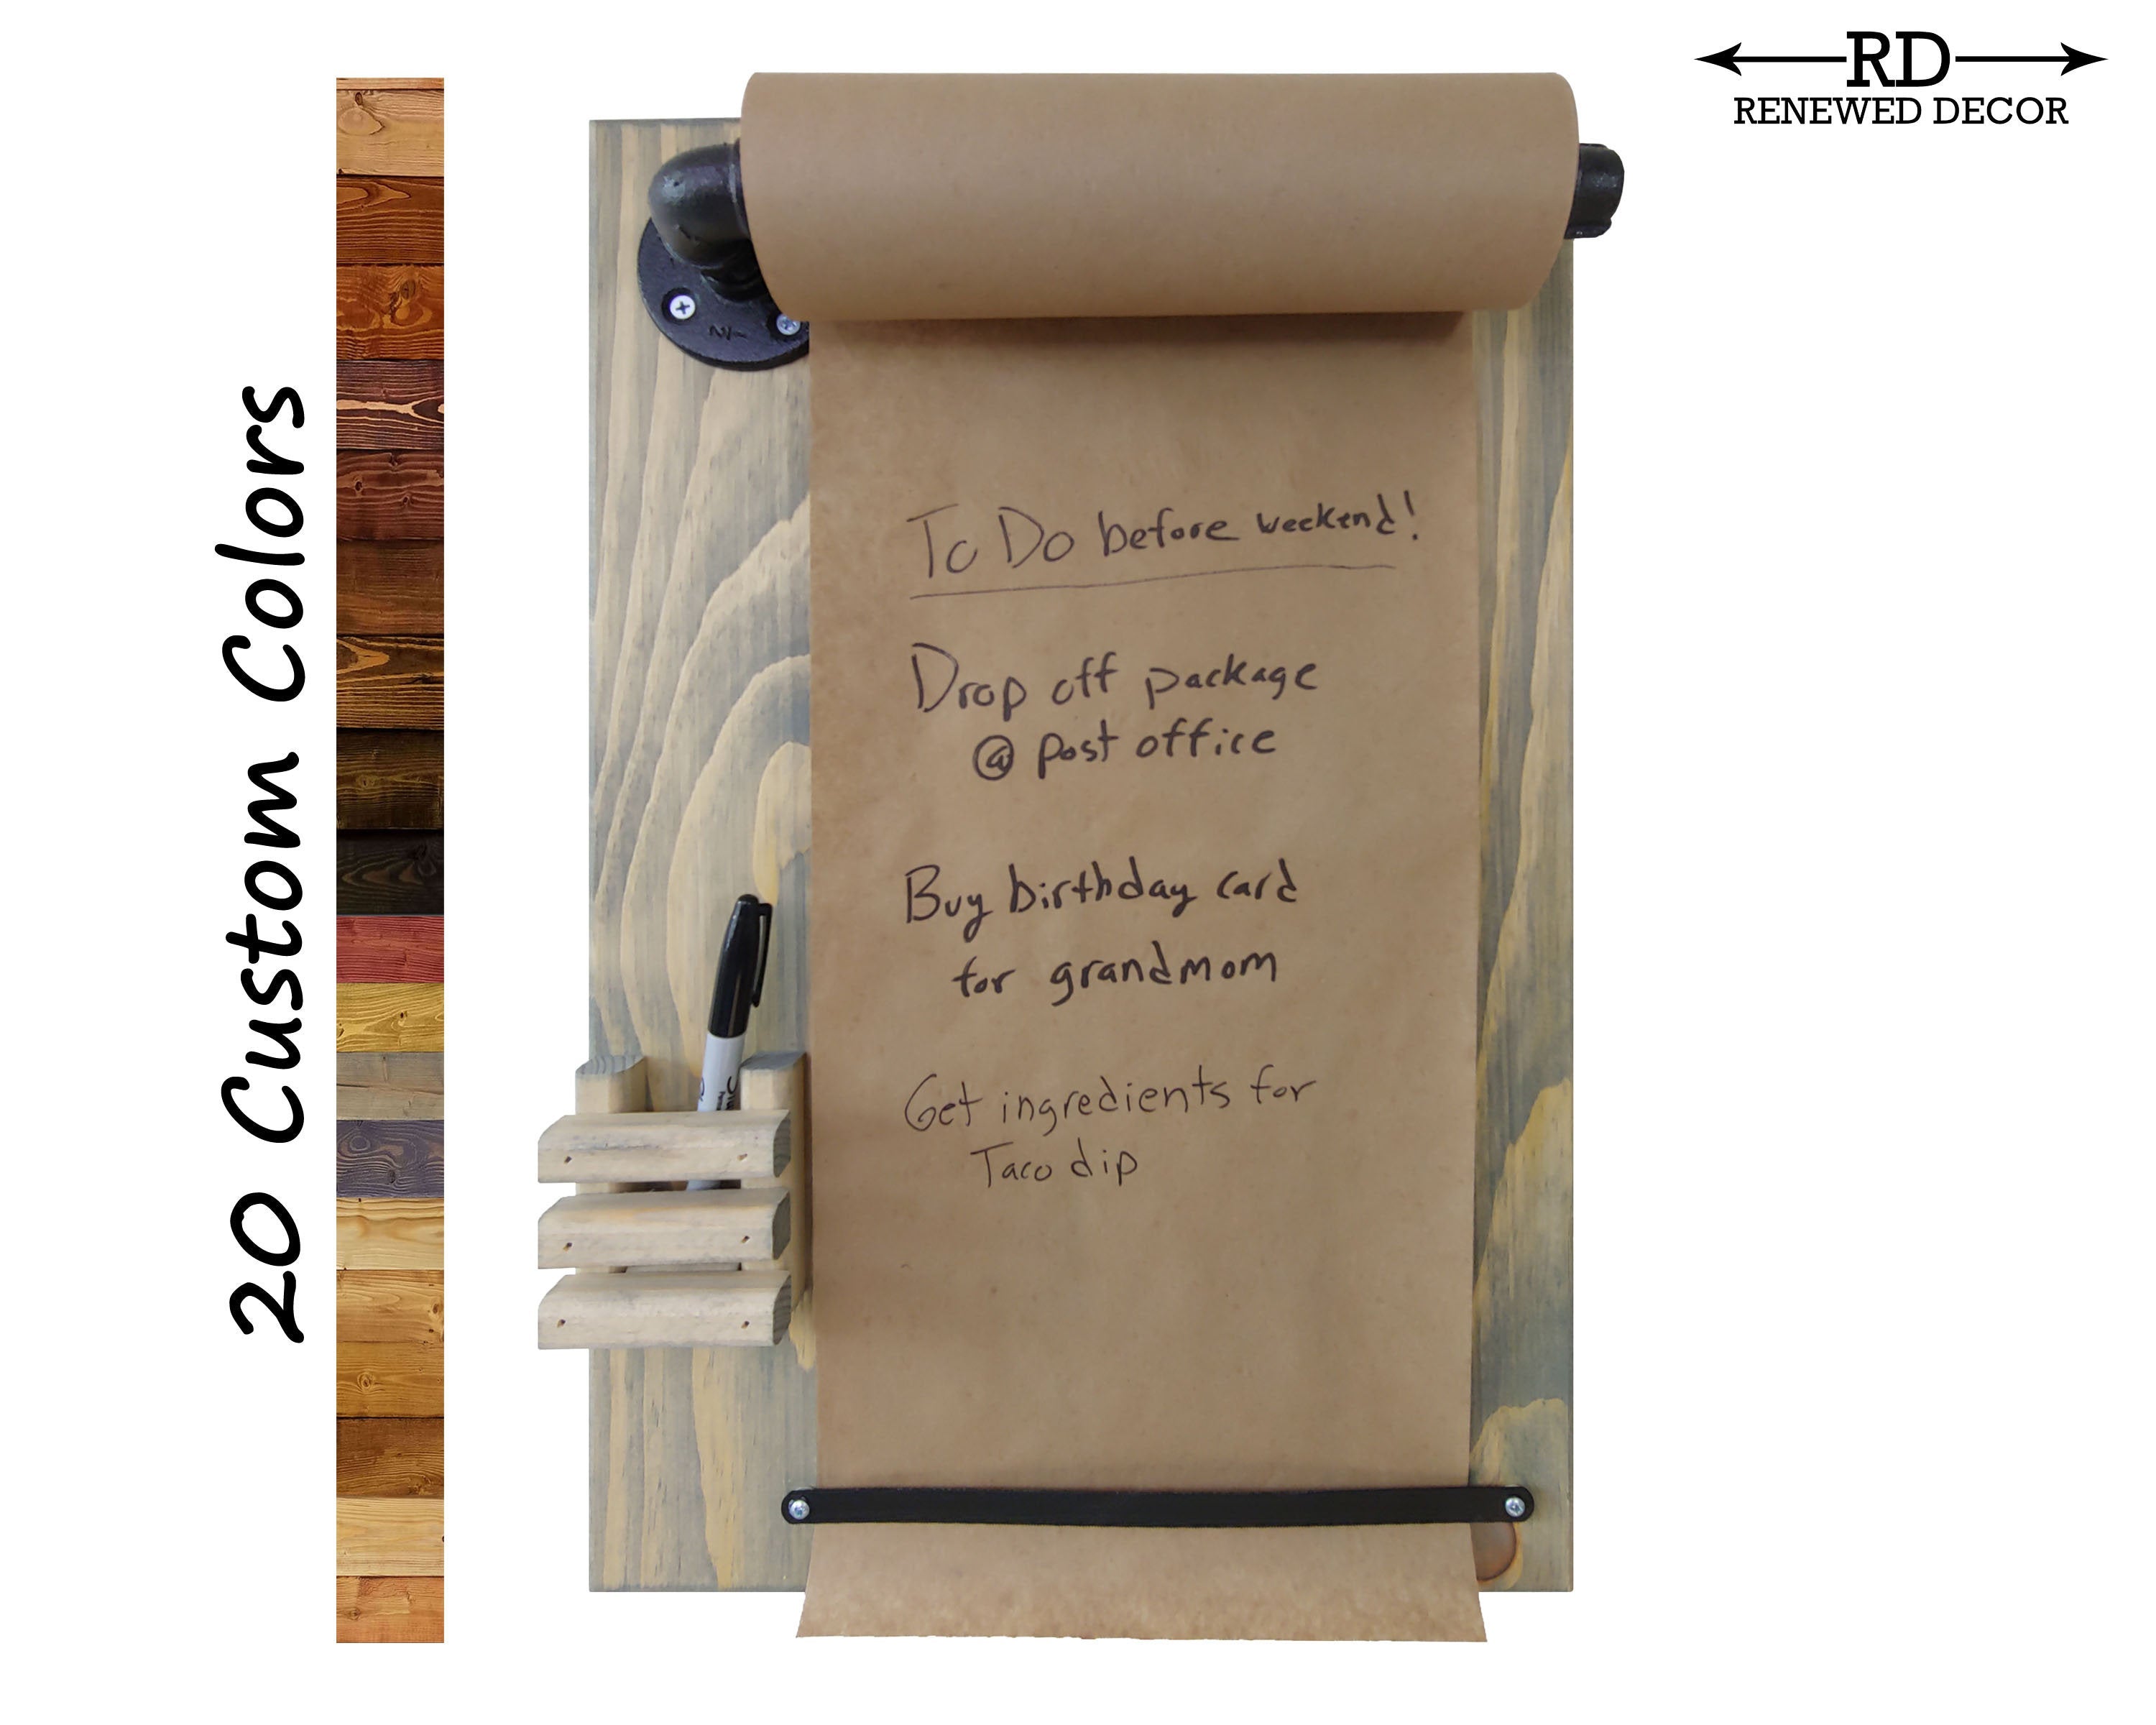 RD
RENEWED DECOR
20 Custom Colors
To Do before weekend!
Drop off package
@ post office
Buy birthday card
for grandmom
Get ingredients for
Taco dip